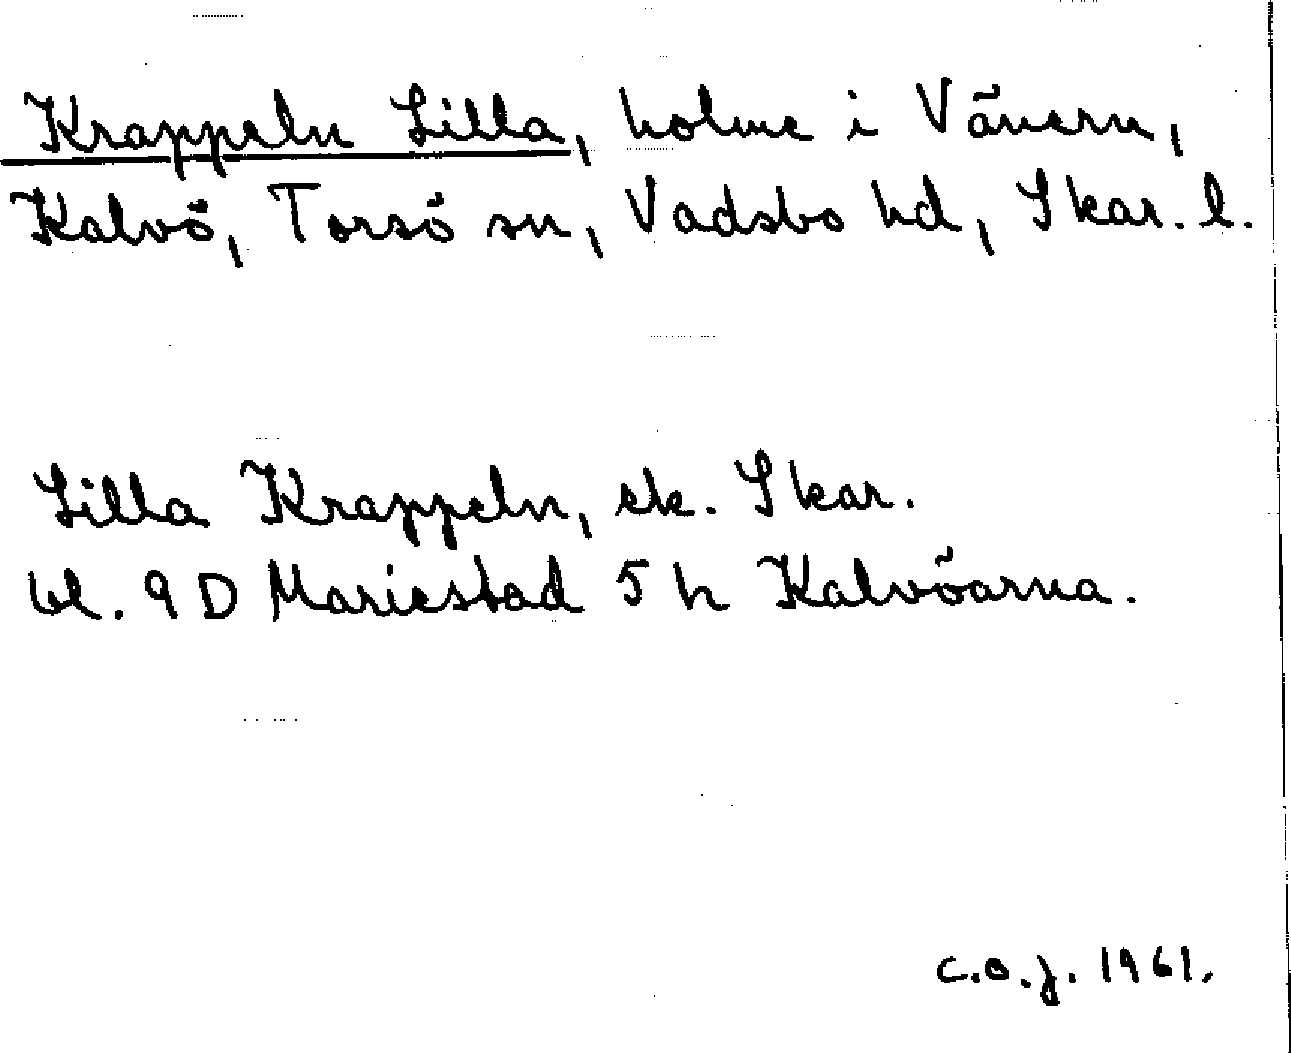 Krappeln Lilla, holme i Vänern,
Kalvö, Torsö sn, Vadsbo hd, Skar. l.
Lilla Krappeln, ek. Skar.
bl. 9 D Mariestad 5 h Kalvöarna.
C.O.J. 1961.